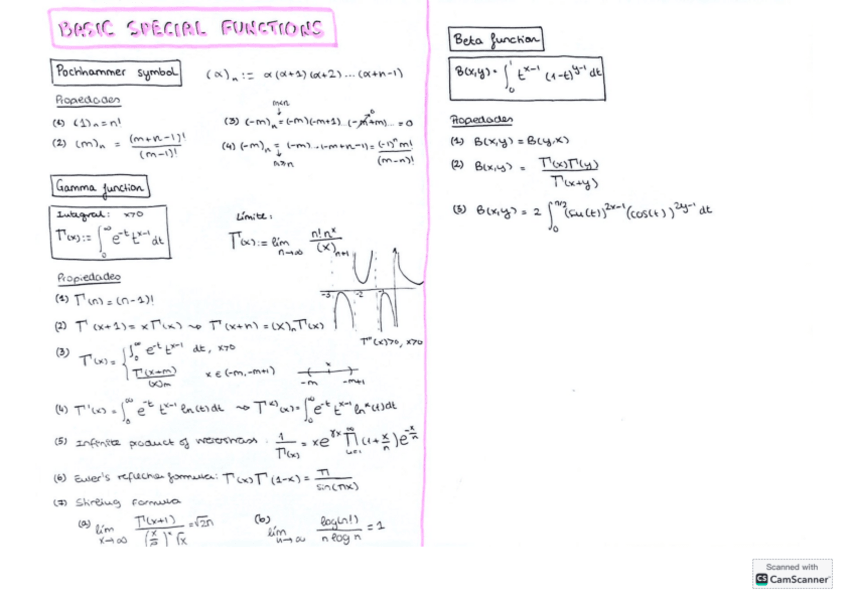 BASIC SPECIAL FUNCTIONS
Pochhammer symbol (α)ₙ := α(α+1)(α+2)...(α+n-1)
Propiedades
(1) (1)ₙ = n!
(2) (m)ₙ = (m+n-1)! / (m-1)!
m<n
(3) (-m)ₙ = (-m)(-m+1)...(-m+m)... = 0
(4) (-m)ₙ = (-m)...(-m+n-1) = (-1)ⁿ m! / (m-n)!
Gamma function
Integral: x>0
Γ(x) := ∫₀^∞ e^-t t^x-1 dt
Límite:
Γ(x) := lím n→∞ n! n^x / (x)ₙ₊₁
Propiedades
(1) Γ(n) = (n-1)!
(2) Γ(x+1) = xΓ(x) ⇝ Γ(x+n) = (x)ₙ Γ(x)
-3 -2 -1
Γ''(x)>0, x>0
(3) Γ(x) = { ∫₀^∞ e^-t t^x-1 dt, x>0
Γ(x+m) / (x)m x ∈ (-m, -m+1)
x
-m -m+1
(4) Γ'(x) = ∫₀^∞ e^-t t^x-1 ln(t) dt ⇝ Γ^(k)(x) = ∫₀^∞ e^-t t^x-1 ln^k(t) dt
(5) Infinite product of . 1/Γ(x) = x e^γx ∏ (1+x/n) e^-x/n
(6) Euler's reflection formula: Γ(x)Γ(1-x) = π / sin(πx)
(7) Stirling Formula
(a) lím x→∞ Γ(x+1) / (x/e)^x √x = √2π
(b) lím n→∞ log(n!) / n log n = 1
Beta function
B(x,y) = ∫₀¹ t^x-1 (1-t)^y-1 dt
Propiedades
(1) B(x,y) = B(y,x)
(2) B(x,y) = Γ(x)Γ(y) / Γ(x+y)
(3) B(x,y) = 2 ∫₀^π/2 (sin(t))^2x-1 (cos(t))^2y-1 dt
Scanned with
CS CamScanner